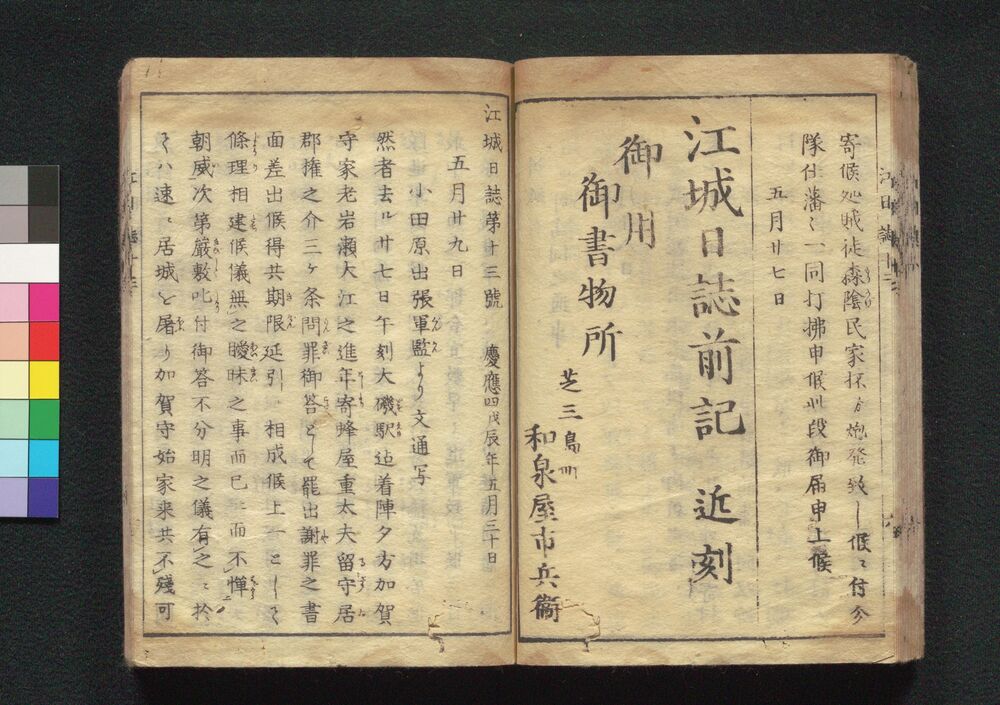 寄候処賊徒森陰民家抔ゟ炮発致し候ニ付分
隊仕藩々一同打拂申候此段御届申上候
五月廿七日
江城日誌前記 近刻
御用
御書物所
芝三島町
和泉屋市兵衞
江城日誌第十三號 慶應四戊辰年五月三十日
五月廿九日
小田原出張軍監より文通写
然者去ル廿七日午刻大磯駅迠着陣夕方加賀
守家老岩瀬大江之進年寄蜂屋重太夫留守居
郡権之介三ヶ条問罪御答として罷出謝罪之書
面差出候得共期限延引ニ相成候上一として
條理相建候儀無之曖昧之事而已ニ而不憚
朝威次第嚴敷叱付御答不分明之儀有之ニ於
てハ速ニ居城を屠り加賀守始家来共不殘可